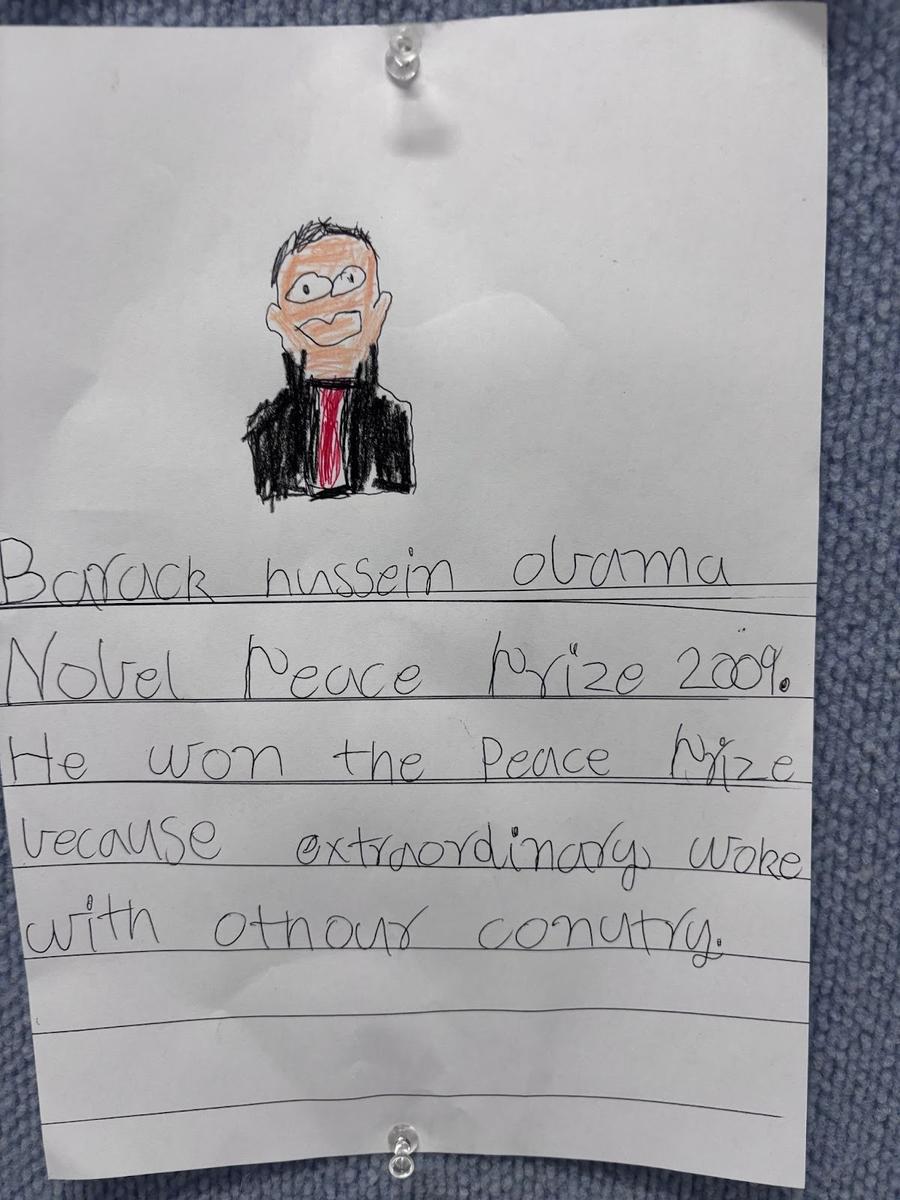 Barack hussein obama
Nobel Peace Prize 2009.
He won the Peace Prize
because extraordinary woke
with othour conutry.